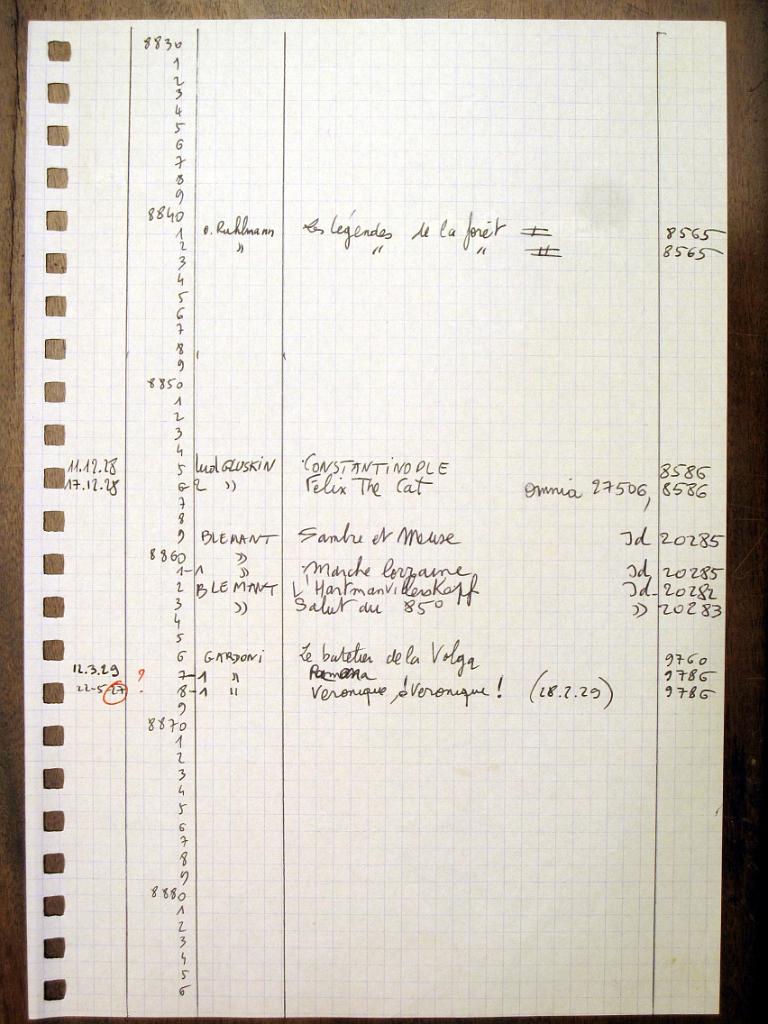 8830
1
2
3
4
5
6
7
8
9
8840
1 O. Ruhlmann Les légendes de la forêt 8565
2 " " " 8565
3
4
5
6
7
8
9
8850
1
2
3
4
11.12.28 5 Lud GLUSKIN CONSTANTINOPLE 8586
17.12.28 6-2 " Felix The Cat omnia 27506, 8586
7
8
9 BLEMANT Sambre et Meuse Id 20285
8860 "
1-1 " Marche lorraine Id 20285
2 BLEMANT L'Hartmanvillerskopf Id 20282
3 " Salut du 85° " 20283
4
5
6 GARDONI Le batelier de la Volga 9760
12.3.29 ? 7-1 " Ramona 9786
22-5-27 . 8-1 " Veronique, ô Veronique ! (28.2.29) 9786
9
8870
1
2
3
4
5
6
7
8
9
8880
1
2
3
4
5
6